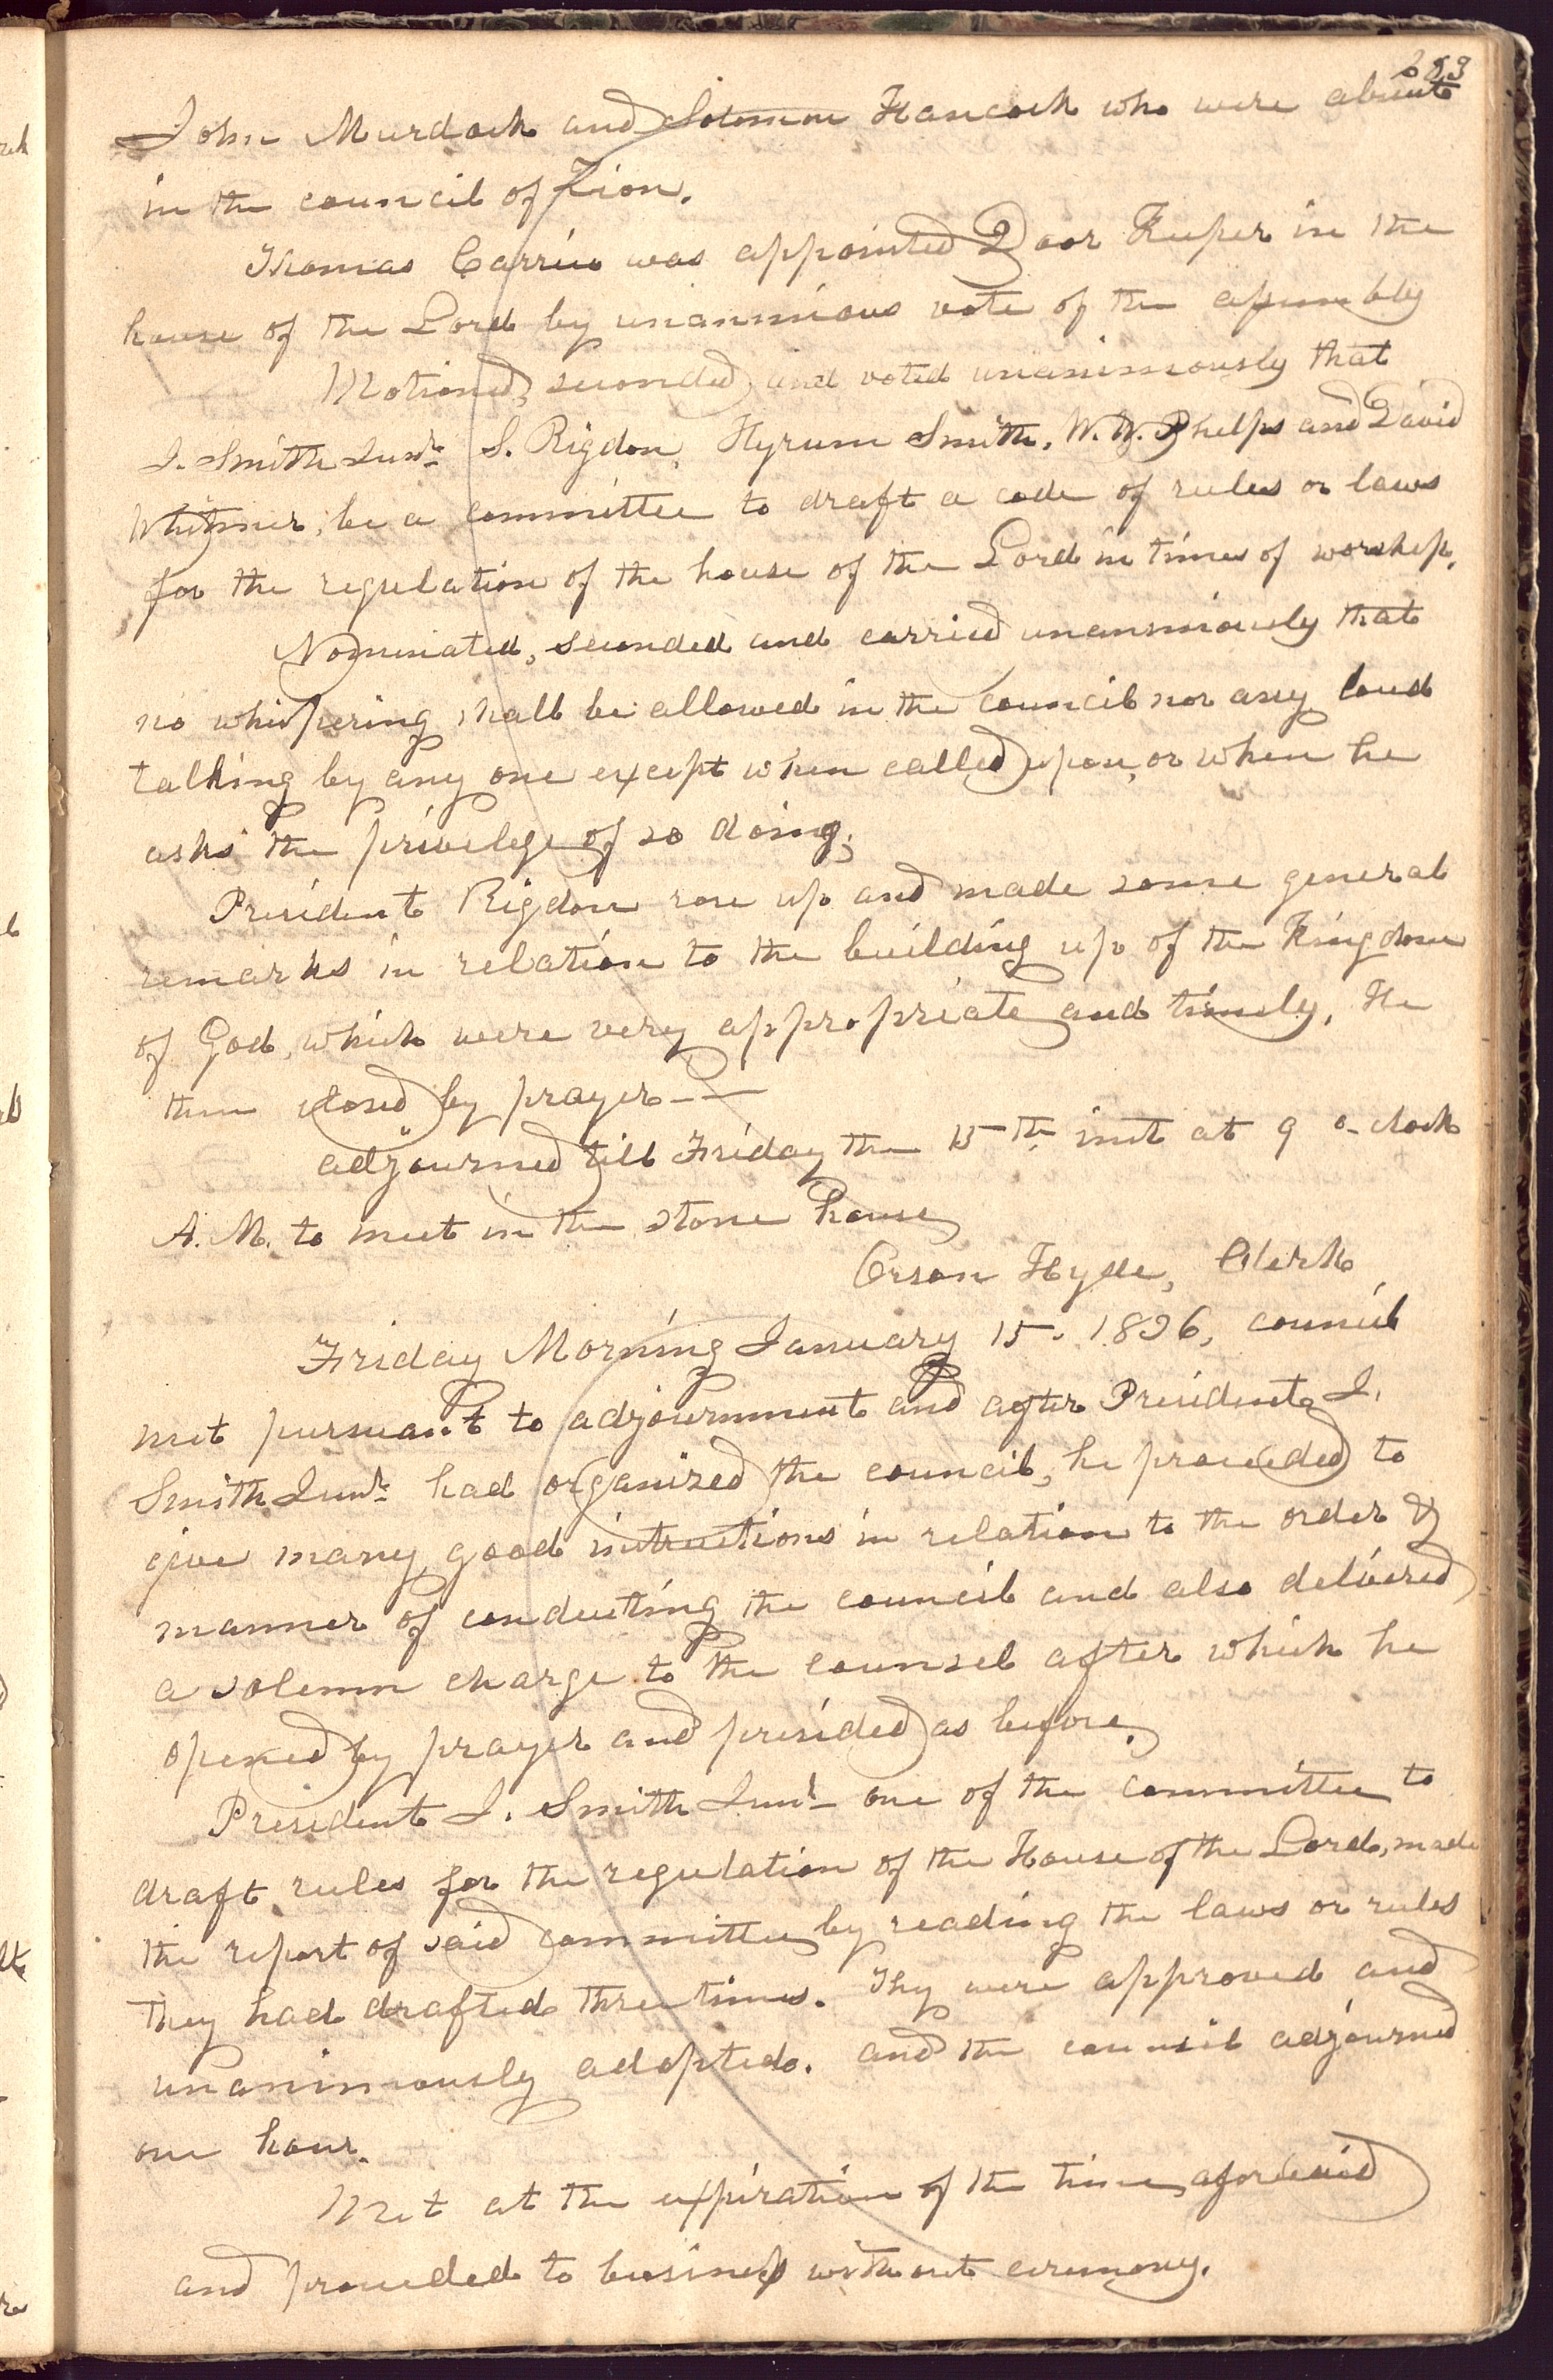 203
John Murdock and Solomon Hancock who were absent
in the council of Zion.
Thomas Carrico was appointed Door Keeper in the
house of the Lord by unanimous vote of the assembly
Motioned, seconded, and voted unanimously that
J. Smith Junr. S. Rigdon, Hyrum Smith, W. W. Phelps and David
Whitmer, be a committee to draft a code of rules or laws
for the regulation of the house of the Lord in times of worship.
Nominated, seconded and carried unanimously that
no whispering shall be allowed in the council nor any loud
talking by any one except when called upon, or when he
asks the privelege of so doing;
President Rigdon rose up and made some general
remarks in relation to the building up of the Kingdom
of God, which were very appropriate and timely, He
then closed by prayer——
adjourned till Friday the 15th. inst at 9 o-clock
A. M. to meet in the stone house
Orson Hyde, Clerk
Friday Morning January 15. 1836, council
met pursuant to adjournment and after President J.
Smith Junr. had organized the council, he proceeded to
give many good instructions in relation to the order &
manner of conducting the council and also delivered
a solemn charge to the counsel after which he
opened by prayer and presided as before.
President J. Smith Junr. one of the committee to
draft rules for the regulation of the House of the Lord, made
the report of said committee by reading the laws or rules
they had drafted three times. Thy were approved and
unanimously adopted. and the council adjourned
one hour.
Met at the expiration of the time aforesaid
and proceeded to business without ceremony.